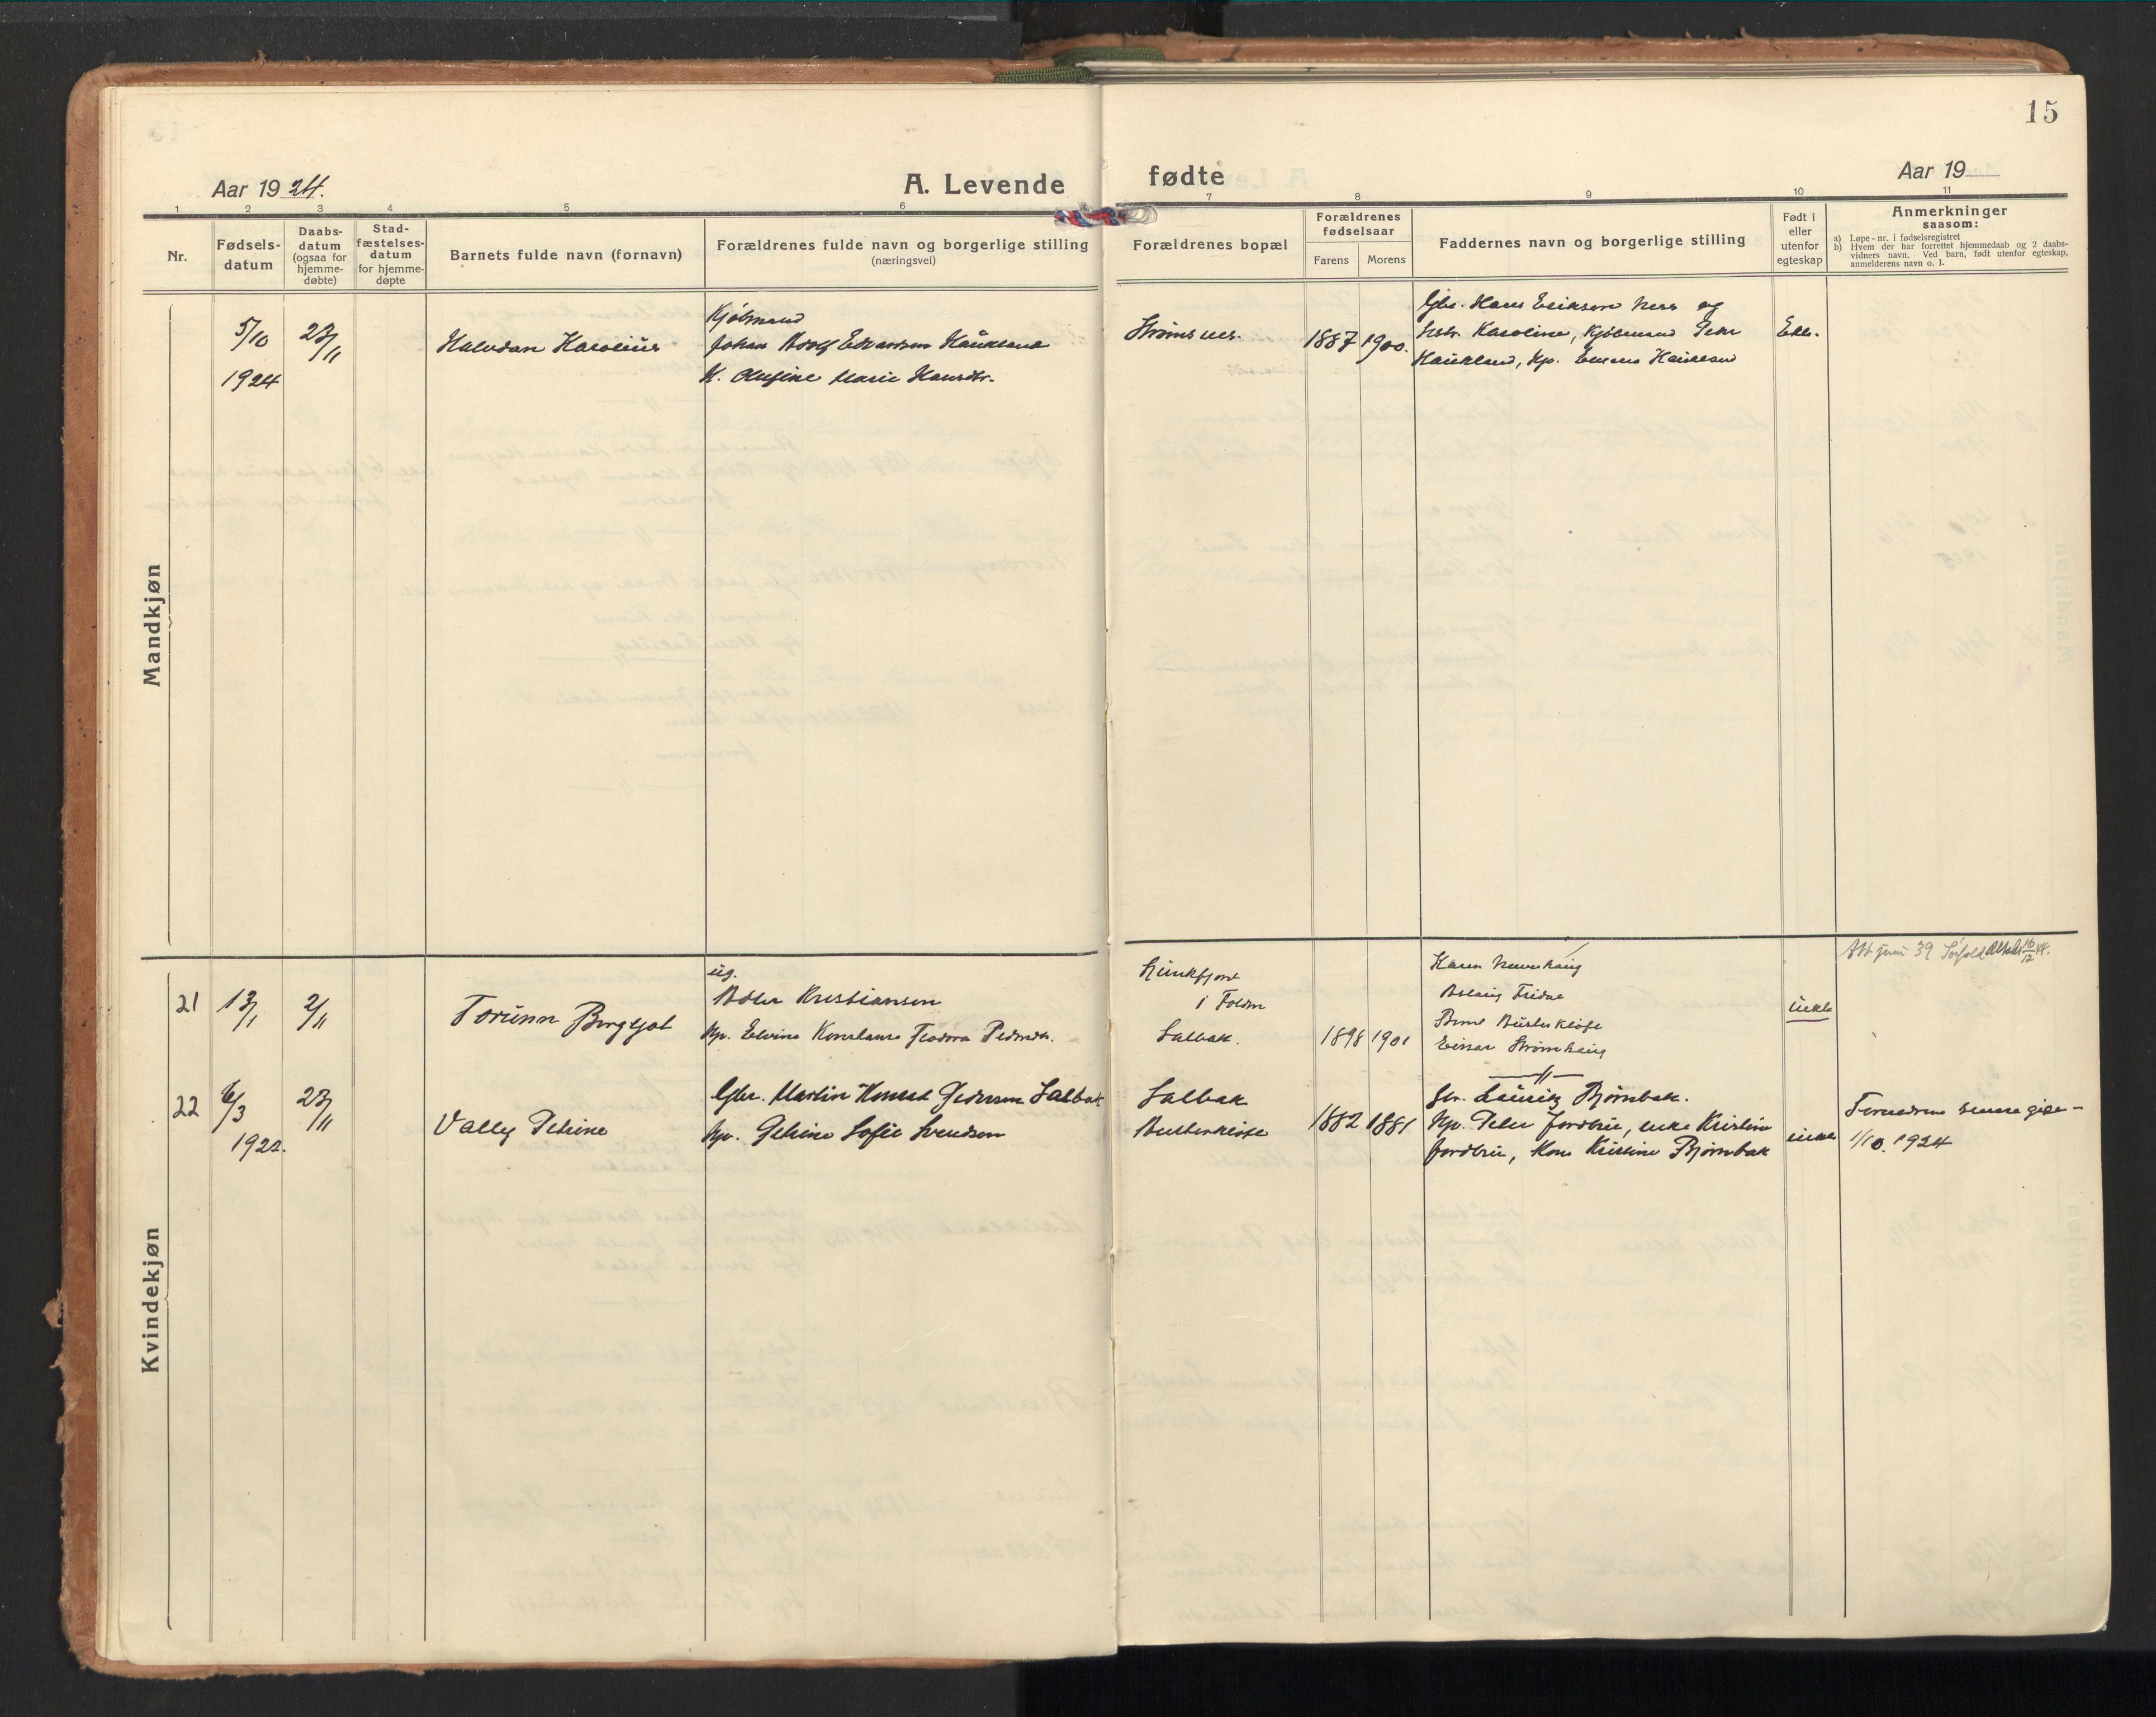 15
Aar 1924.
A. Levende fødte
Aar 19
1 2 3 4 5 6 7 8 9 10 11
Nr.
Fødsels-
datum
Daabs-
datum
(ogsaa for
hjemme-
døbte)
Stad-
fæstelses-
datum
for hjemme-
døpte
Barnets fulde navn (fornavn)
Forældrenes fulde navn og borgerlige stilling
(næringsvei)
Forældrenes bopæl
Forældrenes
fødselsaar
Farens Morens
Faddernes navn og borgerlige stilling
Født i
eller
utenfor
egteskap
Anmerkninger
saasom:
a) Løpe-nr. i fødselsregistret
b) Hvem der har forrettet hjemmedaab og 2 daabs-
vidners navn. Ved barn, født utenfor egteskap,
anmelderens navn o. l.
Mandkjøn
5/10
1924
23/11
Halvdan Karolius
Kjøbmand
Johan Adolf Edvardsen Haukland
H. Marie Hansdtr.
Strømsnes.
1887 1900.
Gbr. Hans Eriksen Ness og
Karoline, Kjøbmand Peder
Haukland, Kp. Haukland
Ekte.
Kvindekjøn
21
13/1
2/11
Torunn Bergljot
ug.
Adler Kristiansen
Kp. Elvine Konstanse Teodora Pedersdtr.
i Folden
Salbak.
1898 1901
Karen
Einar Strømhaug
uekte
Att juni 39 Sørfold Attest 16/12 44.
22
6/3
1922.
23/11
Vally Petrine
Gbr. Martin Konrad Pedersen Salbak
Kp. Petrine Sofie Svendsen
Salbak
1882 1881
Gbr. Lauritz Bjørnbak.
Kp. Peder Jordbru, enke Kristine
Jordbru, Kone Kristine Bjørnbak
uekte
Foreldrene senere gift
1/10. 1924